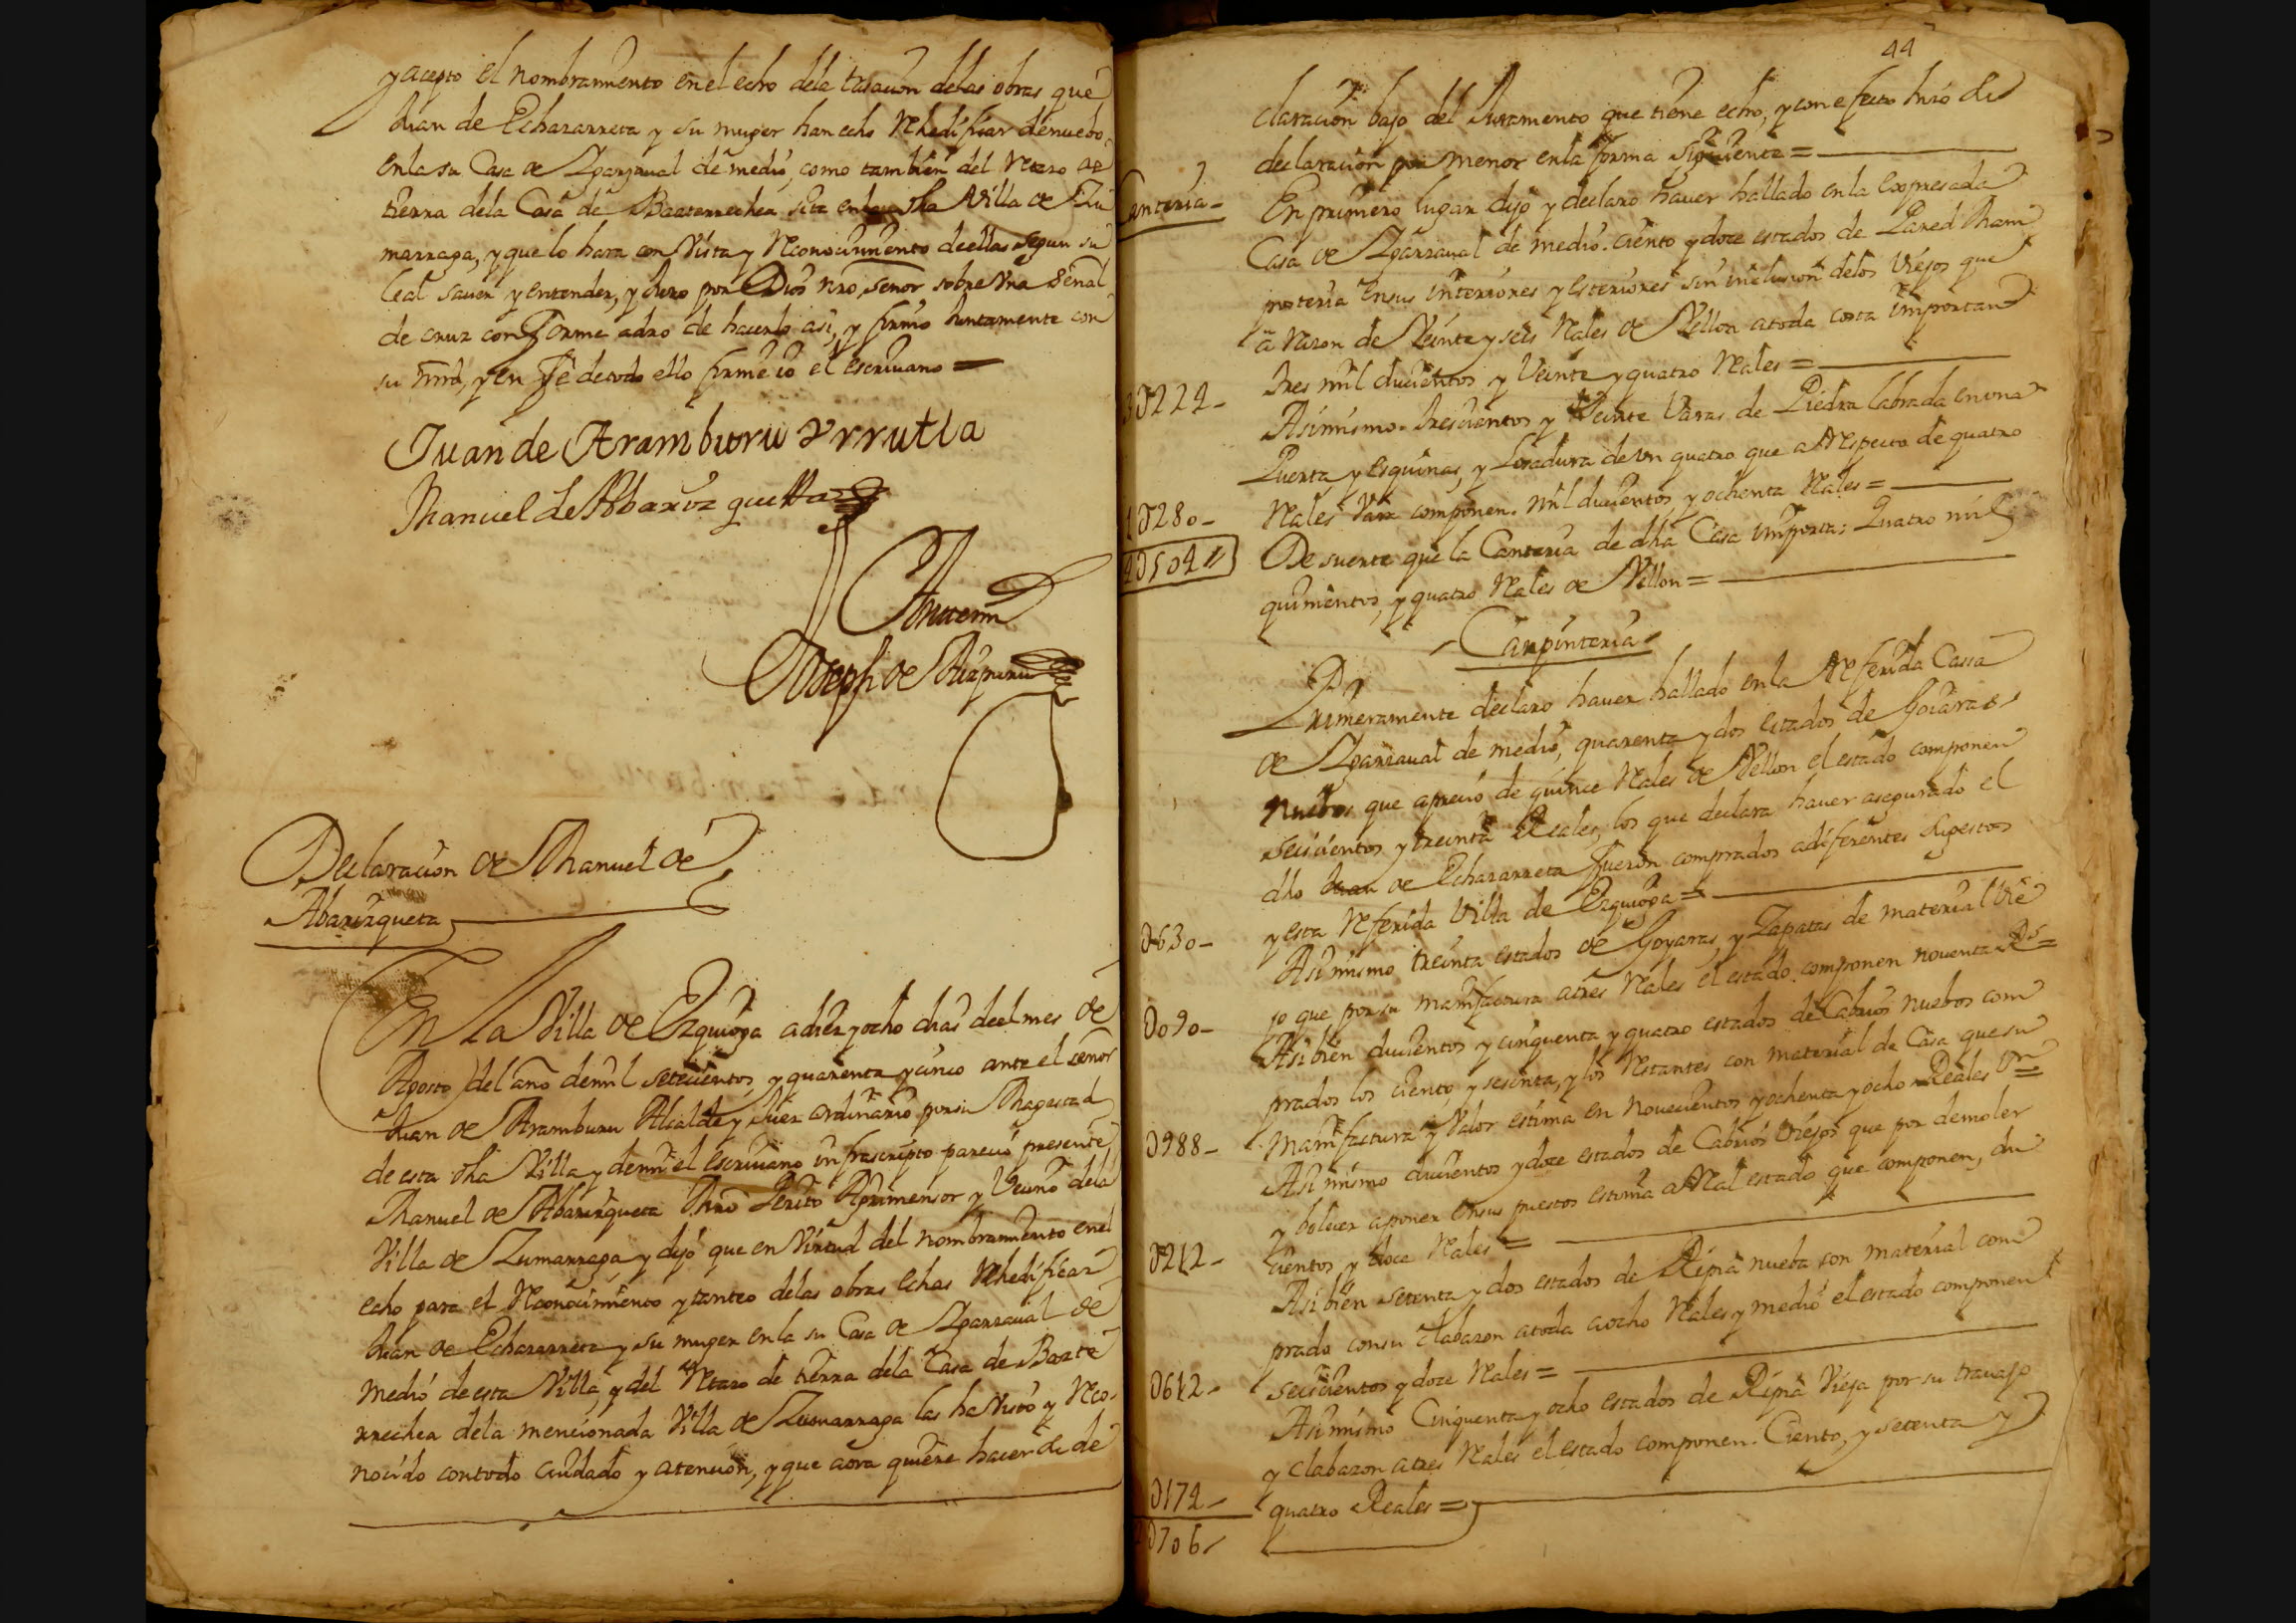 y acepto el nombramiento en el echo dela tasacion delas obras que
Juan de Echazarreta y su muger han echo Rhedificar denuebo
enla su Casa de Ygarzaual de medio, como tambien del Retazo de
tierra dela Casa de Baaterrechea sita enla dha Villa de Zu
marraga, y que lo hara con Vista y Reconocimiento deellas segun su
leal sauer y entender, y Juro por Dios nro señor sobre Vna señal
de cruz conforme adro de hacerlo asi, y firmo Juntamente con
su mrd, y en Fe detodo ello firme io el escriuano =
Juan de Aramburu Yrrutia
Manuel de Abarizqueta
Antemi
Joseph de Aizpuru
Declaracion de Manuel de
Abarizqueta
En la Villa de Ezquioga a diez y ocho dias deel mes de
Agosto del año demil setecientos y quarenta y cinco ante el señor
Juan de Aramburu Alcalde y Juez ordinario por su Magestad
de esta dha Villa y demi el escriuano infrascripto parecio presente
Manuel de Abarizqueta Mro Perito Agrimensor y Vecino dela
Villa de Zumarraga y dijo que en Virtud del nombramiento enel
echo para el Reconocimiento y tanteo delas obras echas Rhedificar
Juan de Echazarreta y su muger en la su Casa de Ygarzaual de
medio de esta Villa, y del Retazo de tierra dela Casa de Baate
rrechea dela mencionada Villa de Zumarraga las ha Visto y Reco
nocido contodo cuidado y atencion, y que aora quiere hacer su de
44
claracion bajo del Juramento que tiene echo, y con efecto hizo su
declaracion por menor enla forma siguiente =
Canteria =
En primero lugar dijo y declaro hauer hallado enla expresada
Casa de Ygarzaual de medio. ciento y doze estados de Pared Mam
posteria ensus interiores y esteriores sin inclusion delos Viejos que
a razon de Veinte y seis Reales de Vellon atoda costa importan
3U224 -
tres mil ducientos y Veinte y quatro Reales =
Asimismo. trescientos y Veinte Varas de Piedra labrada en una
Puerta y esquinas, y Losadura de un quatro que a Respecto de quatro
1U280 -
Reales Vara componen. mil ducientos, y ochenta Reales =
4U504 //
De suerte que la Canteria de dha Casa importa: Quatro mil
quinientos, y quatro Reales de Vellon =
Carpinteria
Primeramente declaro hauer hallado enla Referida Cassa
de Ygarzaual de medio, quarenta y dos estados de Goiaras
nuebos que aprecio de quince Reales de Vellon el estado componen
seiscientos y treinta Reales, los que declara hauer asegurado el
dho Juan de Echazarreta fueron comprados adiferentes Sugestos
0630 -
y esta Referida Villa de Ezquioga =
Asimismo treinta estados de Goyaras, y Zapatas de material Vie
0090 -
jo que por su manifactura atres Reales el estado componen nouenta Rs =
Asibien ducientos y cinquenta y quatro estados de Cabrios nuebos com
prados los ciento y sesenta, y los Restantes con material de Casa que su
0988 -
Manifactura y Valor estima en nouecientos y ochenta y ocho Reales Vn =
Asimismo ducientos y doze estados de Cabrios Viejos que por demoler
y boluer aponer ensus puestos estima a Real estado que componen, du
0212 -
cientos y doce Reales =
Asibien setenta y dos estados de Ripia nueba con material com
prado consu clabazon atoda aocho Reales y medio el estado componen
0612 -
seiscientos y doze Reales =
Asimismo Cinquenta y ocho estados de Ripia Vieja por su trauajo
y clabazon atres Reales el estado componen. Ciento, y setenta y
0174 -
quatro Reales =
2U706